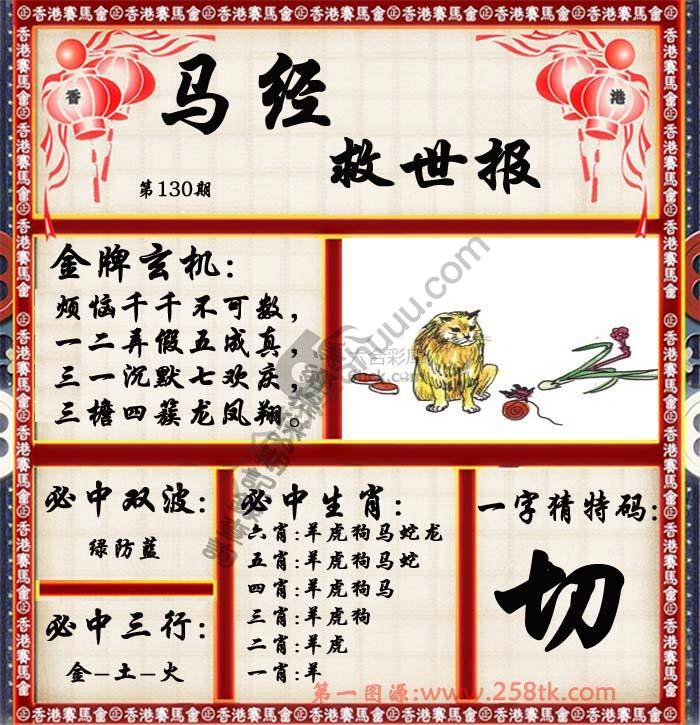 香港賽馬會
香
港
马经
救世报
第130期
金牌玄机:
烦恼千千不可数,
一二弄假五成真,
三一沉默七欢庆,
三檐四簇龙凤翔。
必中双波:
绿防蓝
必中三行:
金-土-火
必中生肖:
六肖:羊虎狗马蛇龙
五肖:羊虎狗马蛇
四肖:羊虎狗马
三肖:羊虎狗
二肖:羊虎
一肖:羊
一字猜特码:
切
第一图源:www.258tk.com